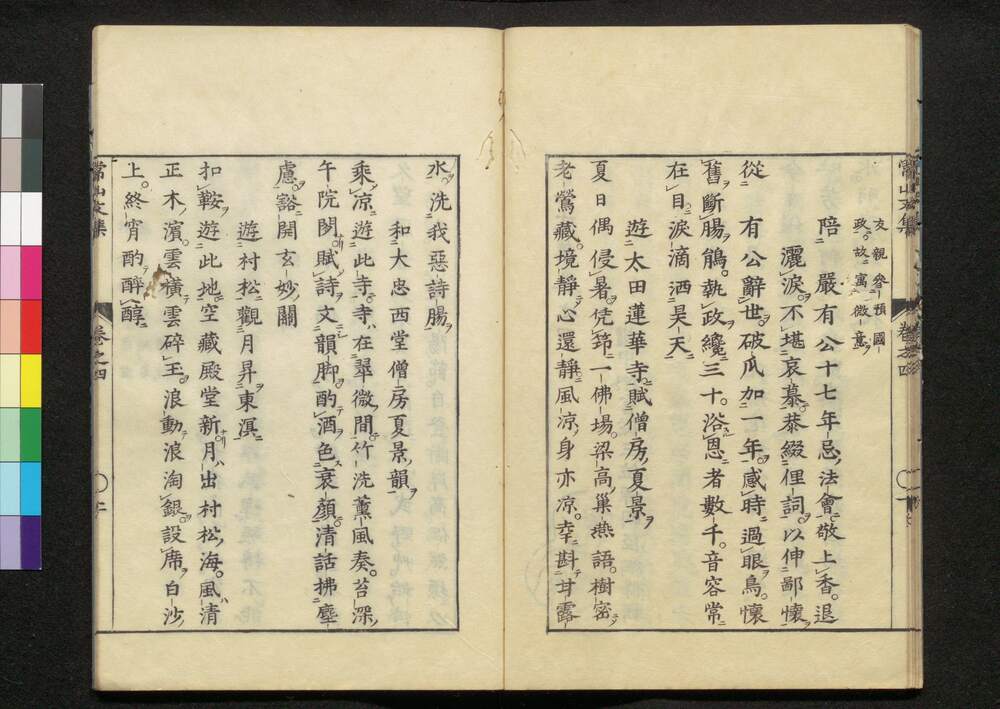 友親參預國
政故寓微意
陪嚴有公十七年忌法會敬上香退
灑淚不堪哀慕恭綴俚詞以伸鄙懷
有公辭世破瓜加一年感時過眼鳥懷
舊斷腸鵑執政纔三十浴恩者數千音容常
在目淚滴洒昊天
遊太田蓮華寺賦僧房夏景
夏日偶侵暑凭筇一佛場梁高巢燕語樹密
老鶯藏境靜心還靜風涼身亦涼幸斟甘露
常山文集
卷之四
水洗我惡詩腸
和大忠西堂僧房夏景韻
乘涼遊此寺寺在翠微間竹洗薰風奏苔深
午院閑賦詩文韻脚酌酒色衰顏清話拂塵
慮豁開玄妙關
遊村松觀月昇東溟
扣鞍遊此地空藏殿堂新月出村松海風清
正木濱雲橫雲碎玉浪動浪淘銀設席白沙
上終宵酌醉醇
常山文集
卷之四